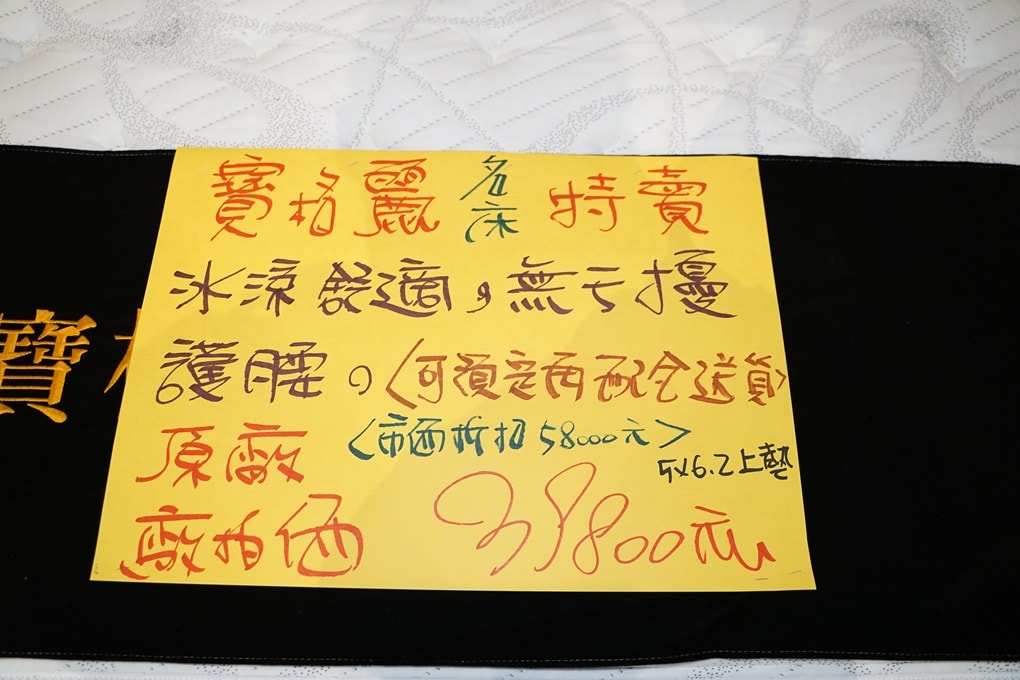 寶格麗名床特賣
冰涼舒適,無干擾
護腰。(可預定再配合送貨)
原廠〈市価折扣58000元〉
5X6.2上墊
廠拍価 39800元
寶格